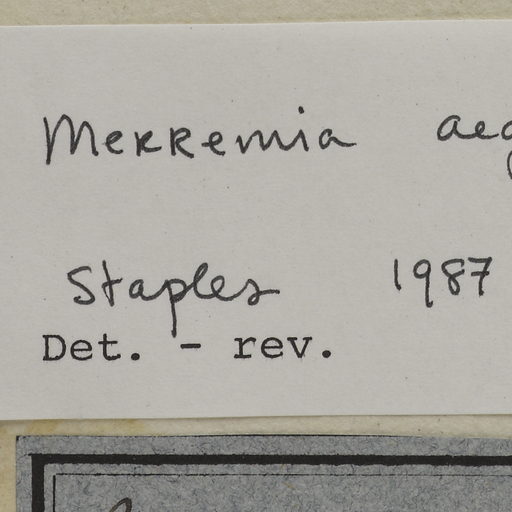 Merremia
Staples 1987
Det. - rev.